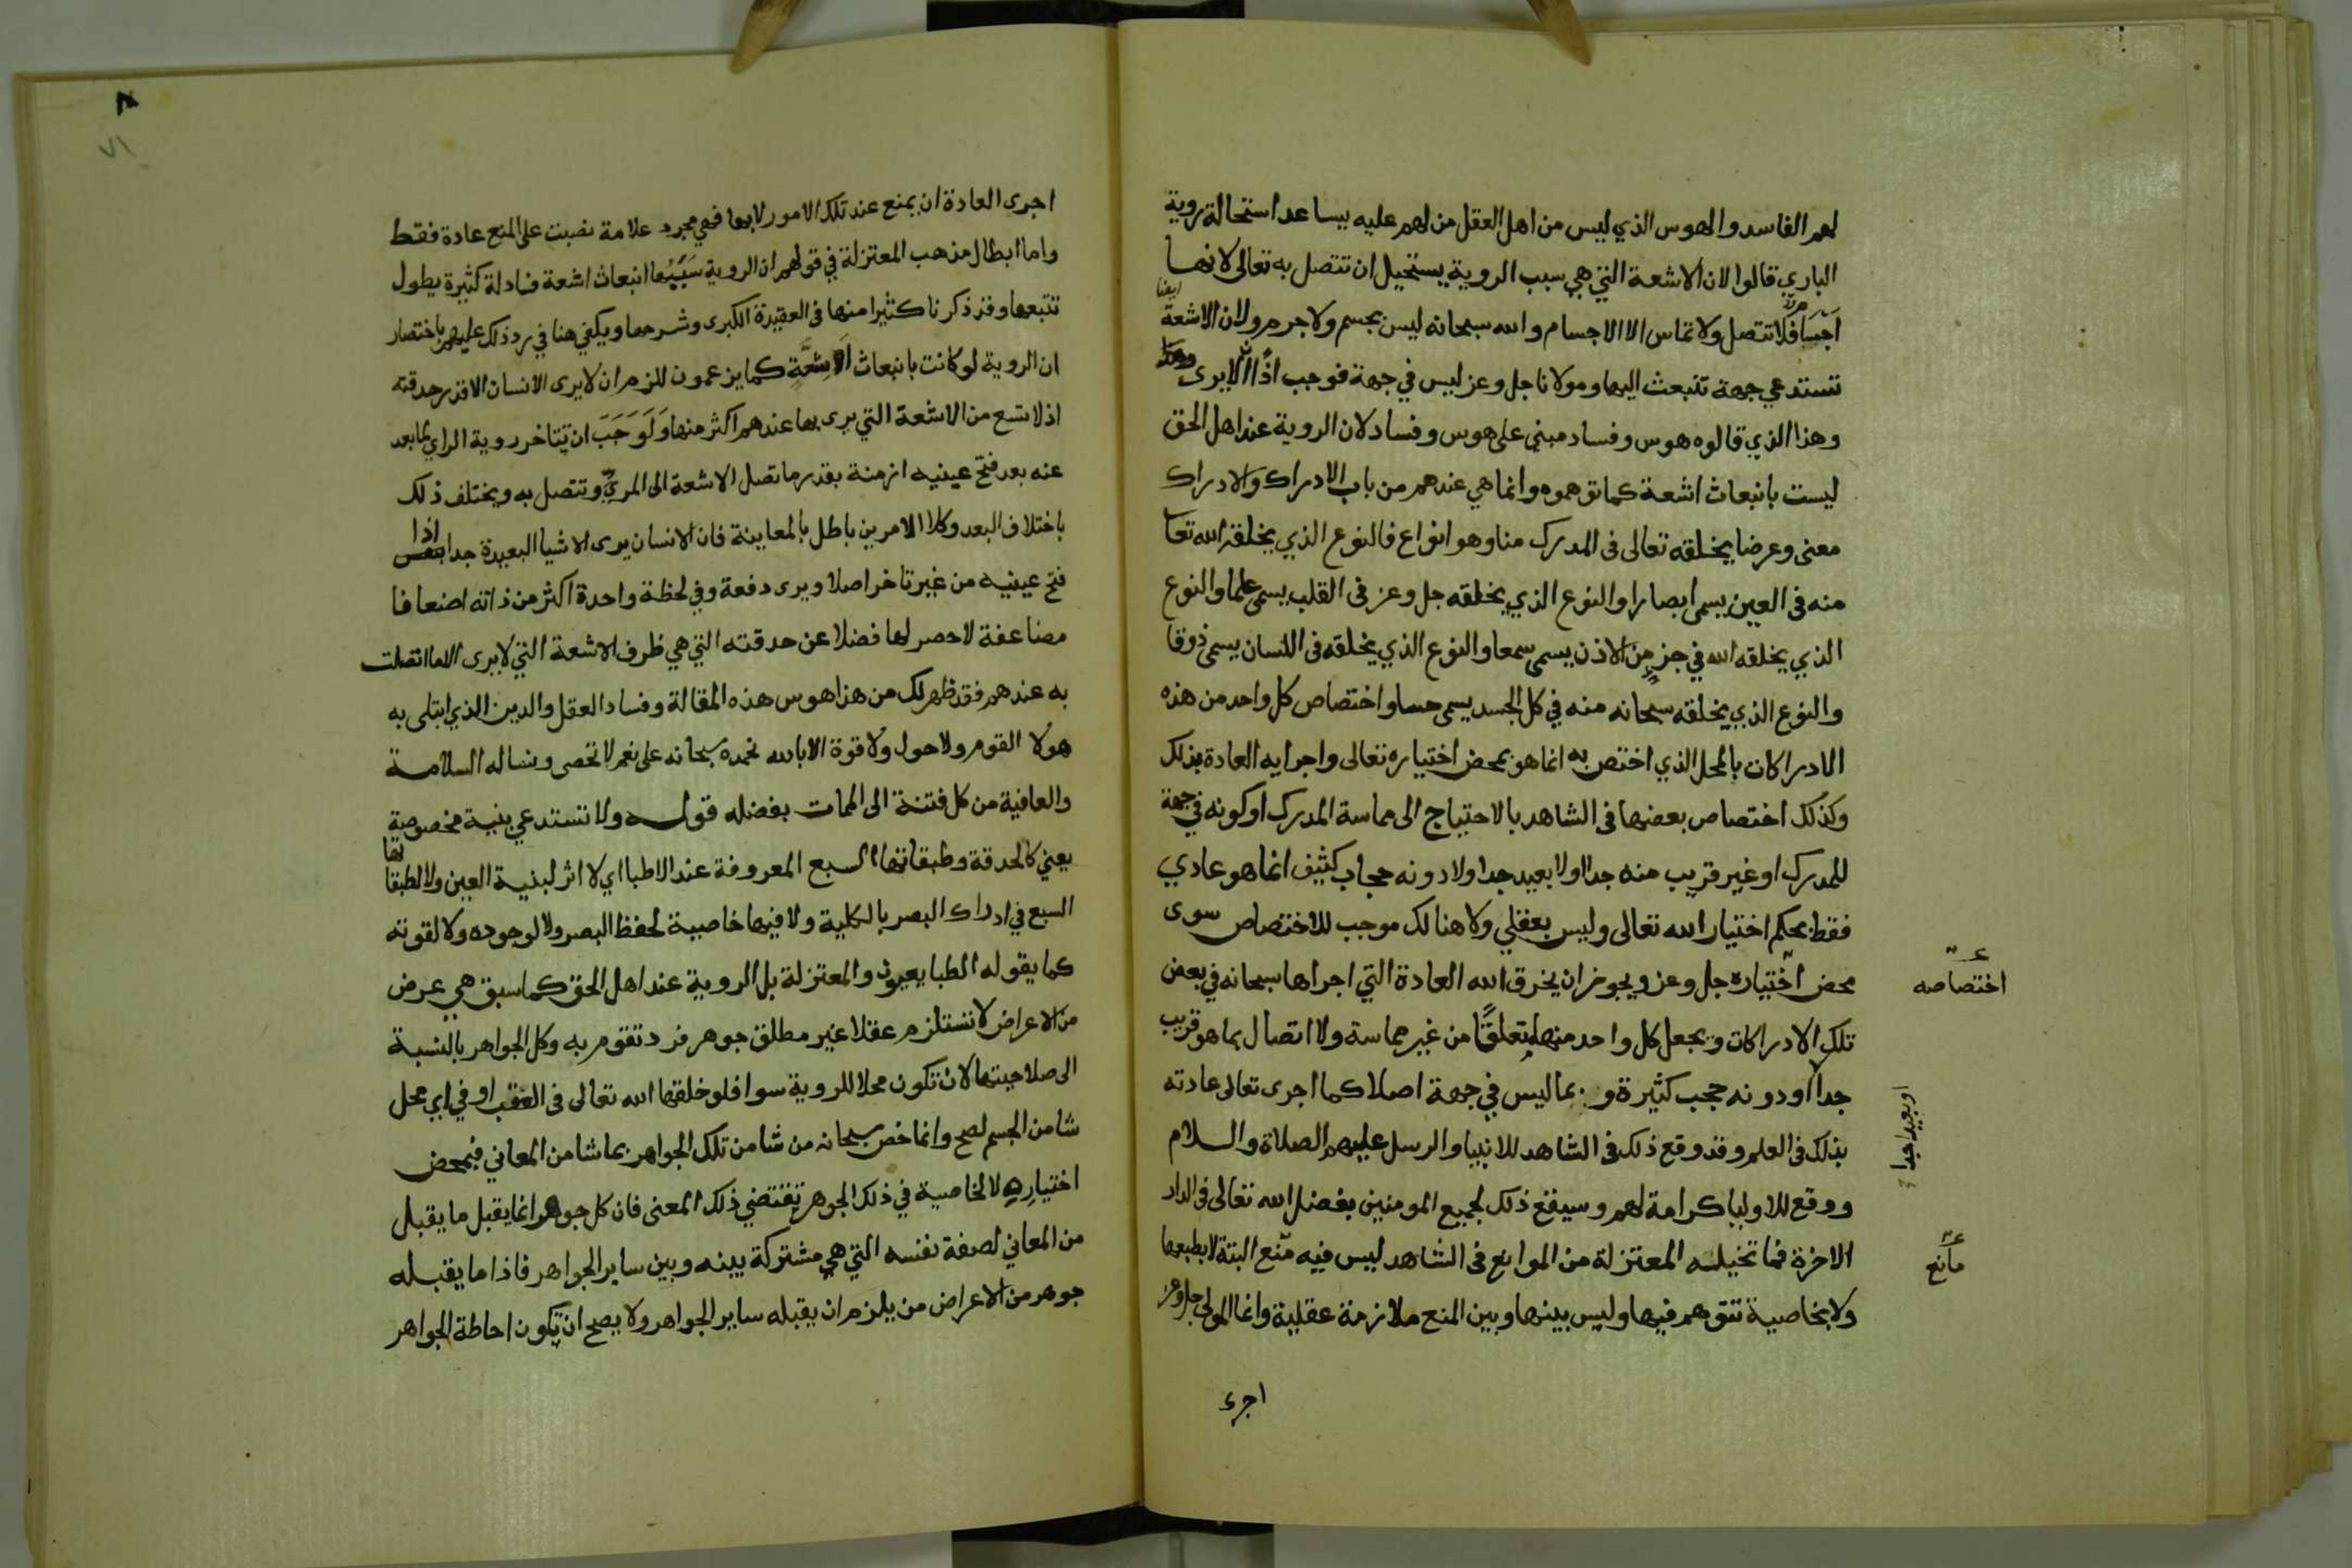 لهم الفاسد والهوس الذي ليس من اهل العقل من لهم عليه يساعد استحالة روية
الباري قالوا لان الاشعة التي هي سبب الروية يستحيل ان تتصل به تعالى لانها
ايضا
اجسام فلا تتصل ولا تماس الا الاجسام والله سبحانه ليس بجسم ولا جرم ولان الاشعة
تستدعي جهة تنبعث اليها ومولانا جل وعز ليس في جهة فوجب اذًا الّا يرى
وهذا الذي قالوه هوس وفساد مبني على هوس وفساد لان الروية عند اهل الحق
ليست بانبعاث اشعة كما توهموه وانما هي عندهم من باب الادراك والادراك
معنى وعرضا يخلقه تعالى فى المدرك منا وهو انواع فالنوع الذي يخلقه الله تعا
منه فى العين يسمى ابصارا والنوع الذي يخلقه جل وعز فى القلب يسمى علما والنوع
الذي يخلقه الله في جزء من الاذن يسمى سمعا والنوع الذي يخلقه فى اللسان يسمى ذوقا
والنوع الذي يخلقه سبحانه منه في كل الجسد يسمى حسا واختصاص كل واحد من هذه
الادراكات بالمحل الذي اختص به انما هو بمحض اختياره تعالى واجرايه العادة بذلك
وكذلك اختصاص بعضها فى الشاهد بالاحتياج الى مماسة المدرك او كونه في جهة
للمدرك او غير قريب منه جدا ولا بعيد جدا ولا دونه حجاب كثيف انما هو عادي
فقط بحكم اختيار الله تعالى وليس بعقلي ولا هنالك موجب للاختصاص سوى
محض اختياره جل وعز ويجوز ان يخرق الله العادة التي اجراها سبحانه في بعض
اختصاصه
تلك الادراكات ويجعل كل واحد منها متعلقًا من غير مماسة ولا اتصال بما هو قريب
جدا او دونه حجب كثيرة و بما ليس في جهة اصلا كما اجرى تعالى عادته
او بعيدا جدا
بذلك فى العلم وقد وقع ذلك فى الشاهد للانبيا والرسل عليهم الصلاة والسلام
ووقع للاوليا كرامة لهم وسيقع ذلك لجميع المومنين بفضل الله تعالى فى الدار
الاخرة فما تخيلته المعتزلة من الموانع فى الشاهد ليس فيه منع البتة لا بطبعها
مانع
ولا بخاصية تتوهم فيها وليس بينها وبين المنع ملازمة عقلية وانما المولى جل وعز
اجرى
٨
٧١
اجرى العادة ان يمنع عند تلك الامور لا بها فهي مجرد علامة نصبت على المنع عادة فقط
واما ابطال مذهب المعتزلة في قولهم ان الروية سببها انبعاث اشعة فادلة كثيرة يطول
تتبعها وقد ذكرنا كثيرا منها فى العقيدة الكبرى وشرحها ويكفي هنا في رد ذلك عليهم باختصار
ان الروية لو كانت بانبعاث اشعة كما يزعمون للزم ان لا يرى الانسان الا قدر حدقته
اذ لا تسع من الاشعة التي يرى بها عندهم اكثر منها ولوجب ان تتاخر روية الراي لما بعد
عنه بعد فتح عينيه ازمنة بقدر ما تصل الاشعة الى المريّ وتتصل به ويختلف ذلك
باختلاف البعد وكلا الامرين باطل بالمعاينة فان الانسان يرى الاشيا البعيدة جدا اذا
فتح عينيه من غير تاخر اصلا ويرى دفعة وفي لحظة واحدة اكثر من ذاته اضعافا
مضاعفة لا حصر لها فضلا عن حدقته التي هي ظرف الاشعة التي لا يرى الا ما اتصلت
به عندهم فقد ظهر لك من هذا هوس هذه المقالة وفساد العقل والدين الذي ابتلى به
هولا القوم ولا حول ولا قوة الا بالله نحمده سبحانه على نعم لا تحصى ونساله السلامة
والعافية من كل فتنة الى الممات بفضله قوله ولا تستدعي بنية مخصوصة
يعني كالحدقة وطبقاتها السبع المعروفة عند الاطبا اي لا اثر لبنية العين ولا لطبقاتها
السبع في ادراك البصر بالكلية ولا فيها خاصية لحفظ البصر ولا لوجوده ولا لقوته
كما يقوله الطبايعيون والمعتزلة بل الروية عند اهل الحق كما سبق هي عرض
من الاعراض لا تستلزم عقلا غير مطلق جوهر فرد تقوم به وكل الجواهر بالنسبة
الى صلاحيتها لان تكون محلا للروية سوا فلو خلقها الله تعالى فى العقب او في اي محل
شا من الجسم لصح وانما خص سبحانه من شا من تلك الجواهر بما شا من المعاني فبمحض
اختياره لا لخاصية في ذلك الجوهر تقتضي ذلك المعنى فان كل جوهر انما يقبل ما يقبل
من المعاني لصفة نفسه التي هي مشتركة بينه وبين ساير الجواهر فاذا ما يقبله
جوهر من الاعراض من يلزم ان يقبله ساير الجواهر ولا يصح ان تكون احاطة الجواهر